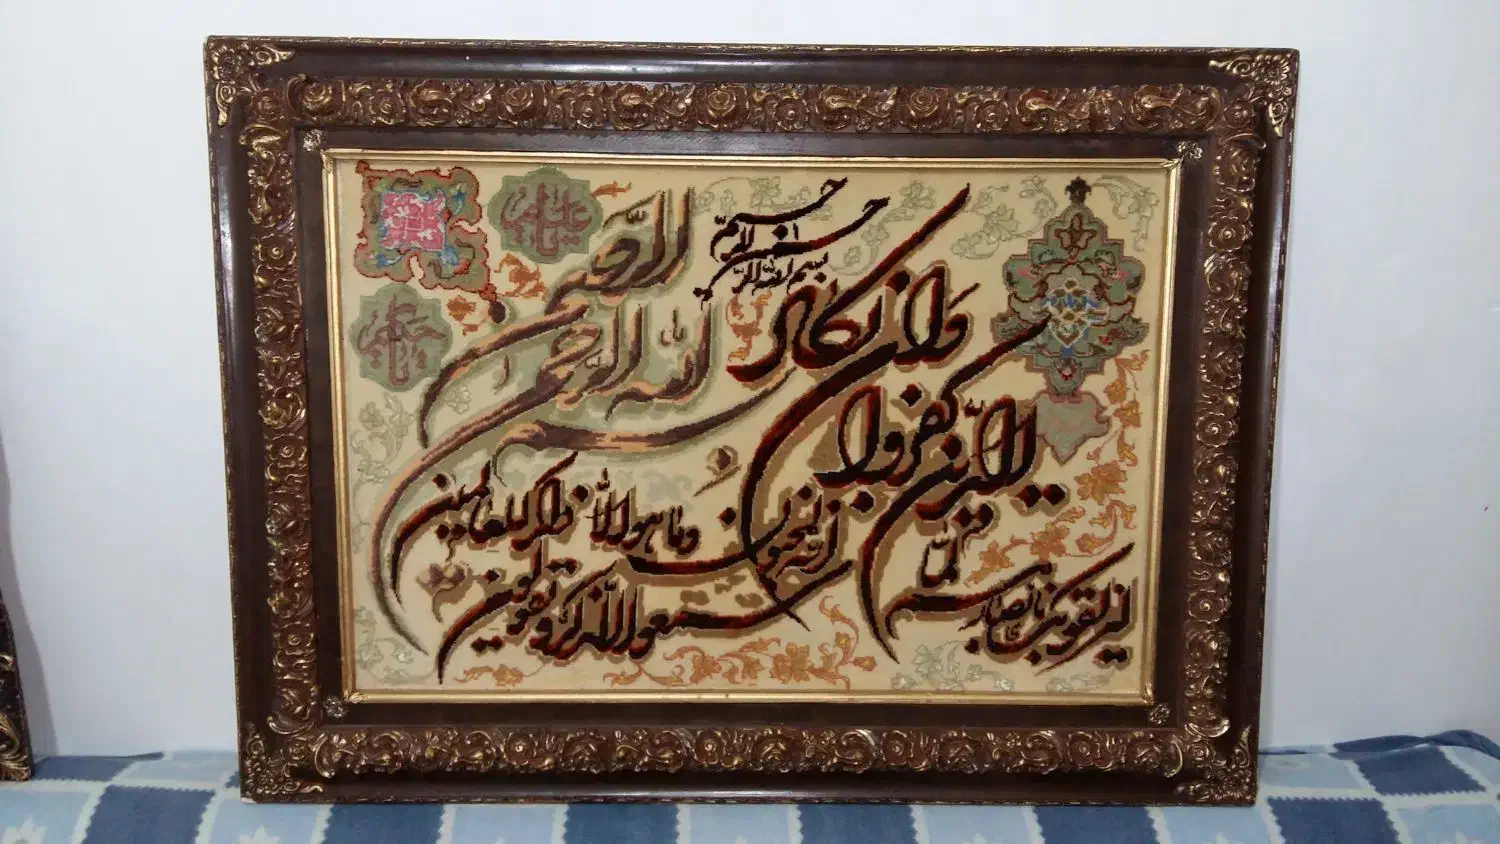 بسم الله الرحمن الرحیم
بسم الله الرحمن الرحیم
وان یکاد
الذین کفروا
لیزلقونک بابصارهم لما
سمعوا الذکر ویقولون
انه لمجنون
وما هو الا ذکر للعالمین